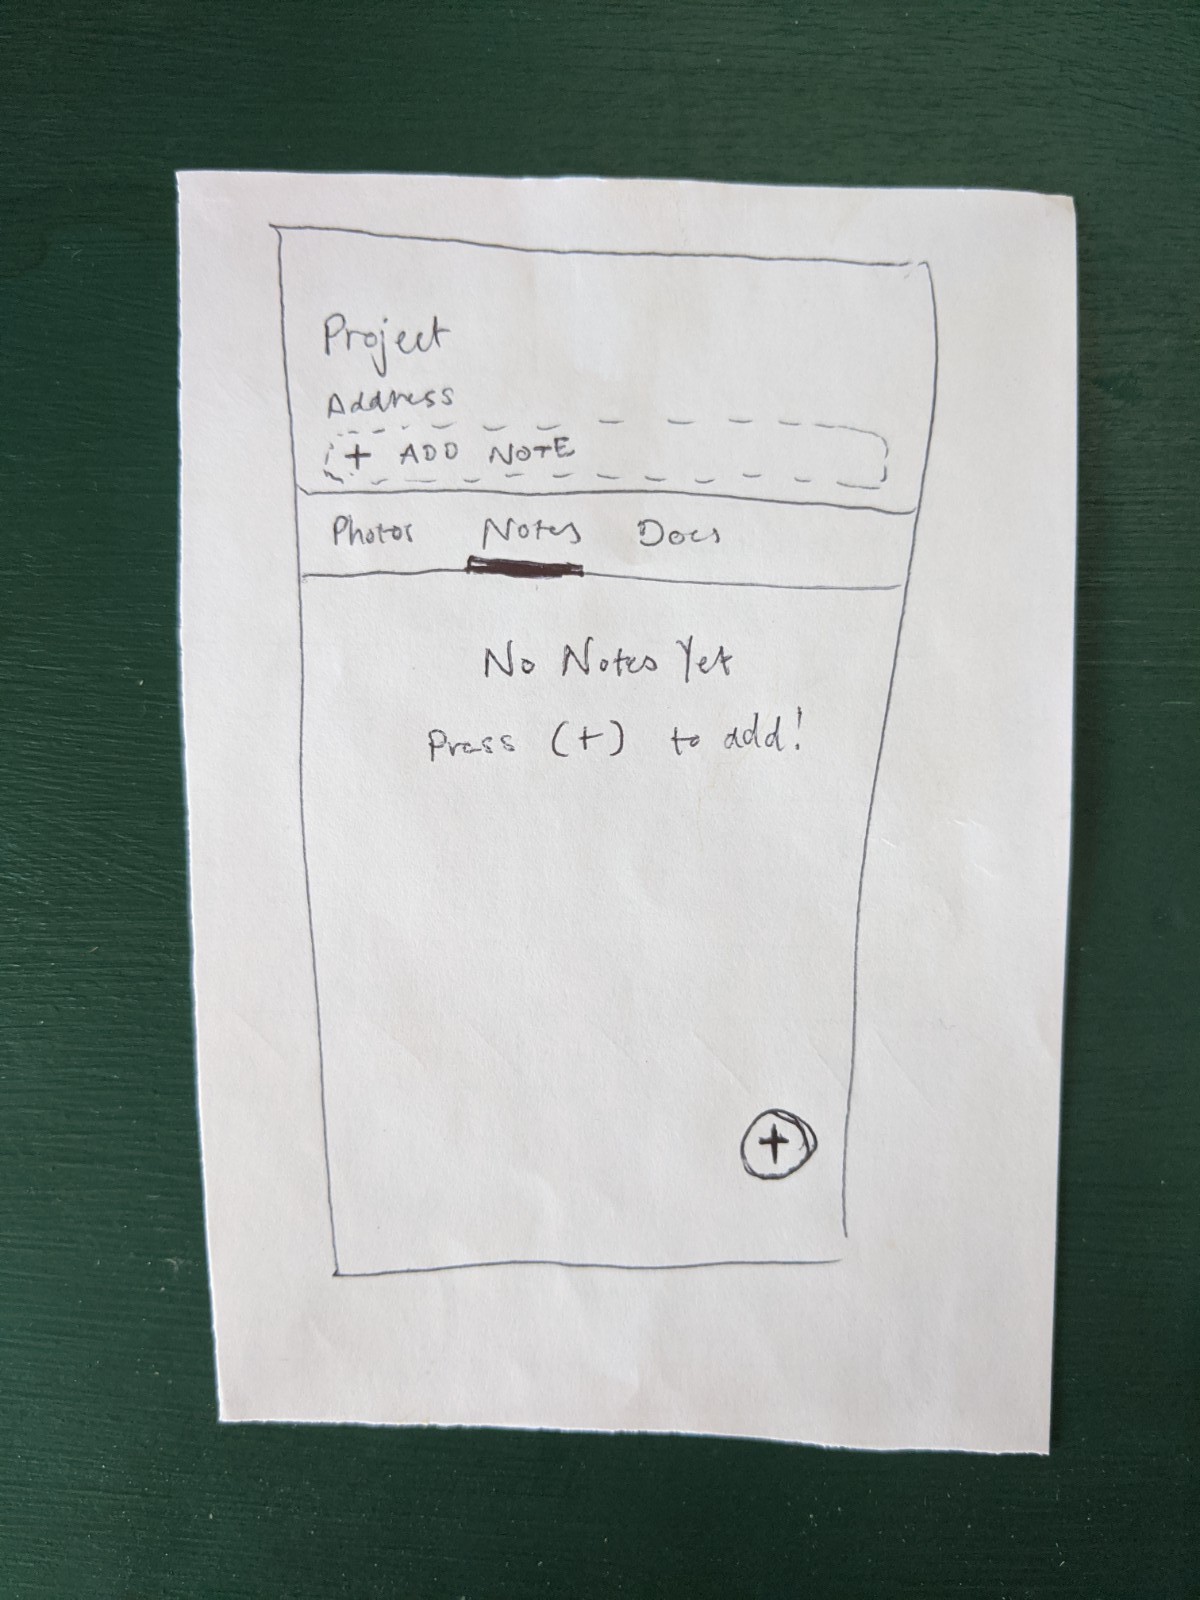 Project
Address
+ ADD NOTE
Photos Notes Docs
No Notes Yet
Press (+) to add!
+